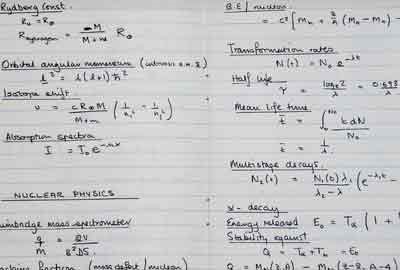 Rydberg Const.
R₀ = R∞
R hydrogen = M / M+m R∞
Orbital angular momentum
l² = l(l+1)ħ²
Isotope shift.
υ = cR∞M / M+m (1/n₁² - 1/n₂²)
Absorption spectra
I = I₀e
NUCLEAR PHYSICS
mass spectrometer
q/m =
fraction (mass defect / nucleon)
B.E / nucleon
= c² [Mn + Z/A (MH - Mn) -
Transformation rates
N(t) = N₀e^-λt
Half life
τ = loge2 / λ = 0.693
Mean life time
t̄ = ∫ t dN / N₀
t̄ = 1/λ
Multistage decays.
N₂(t) = N₁(0)λ₁ / λ₂ - λ₁ (e^-λ₁t -
α - decay
Energy released E₀ = Tα (1 +
Stability against
Q = Tα + Th = E₀